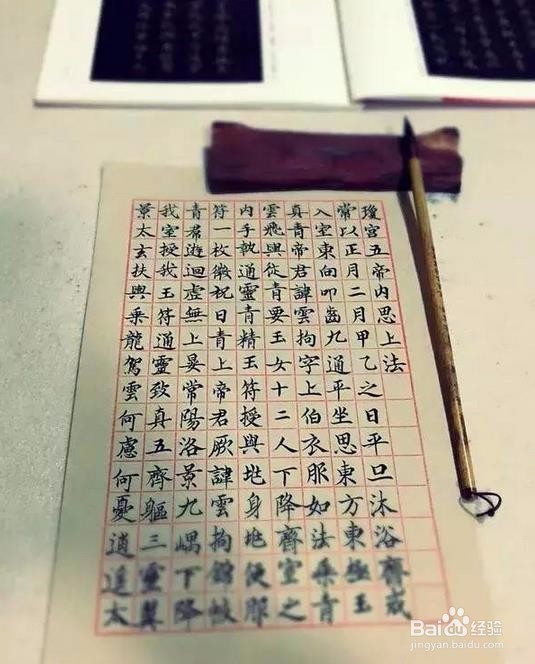 瓊宮五帝內思上法
常以正月二月甲乙之日平旦沐浴齋戒
入室東向叩齒九通平坐思東方東極玉
真青帝君諱雲拘字上伯衣服如法乘青
雲飛輿從青要玉女十二人下降齋室之
內手執通靈青精玉符授與兆身兆便服
符一枚微祝曰青上帝君厥諱雲拘錦帔
青帬遊迴虛無上晏常陽洛景九嵎下降
我室授我玉符通靈致真五齊軀三靈翼
景太玄扶輿乘龍駕雲何慮何憂逍遙太
Baidu经验
jingyan.baidu.com